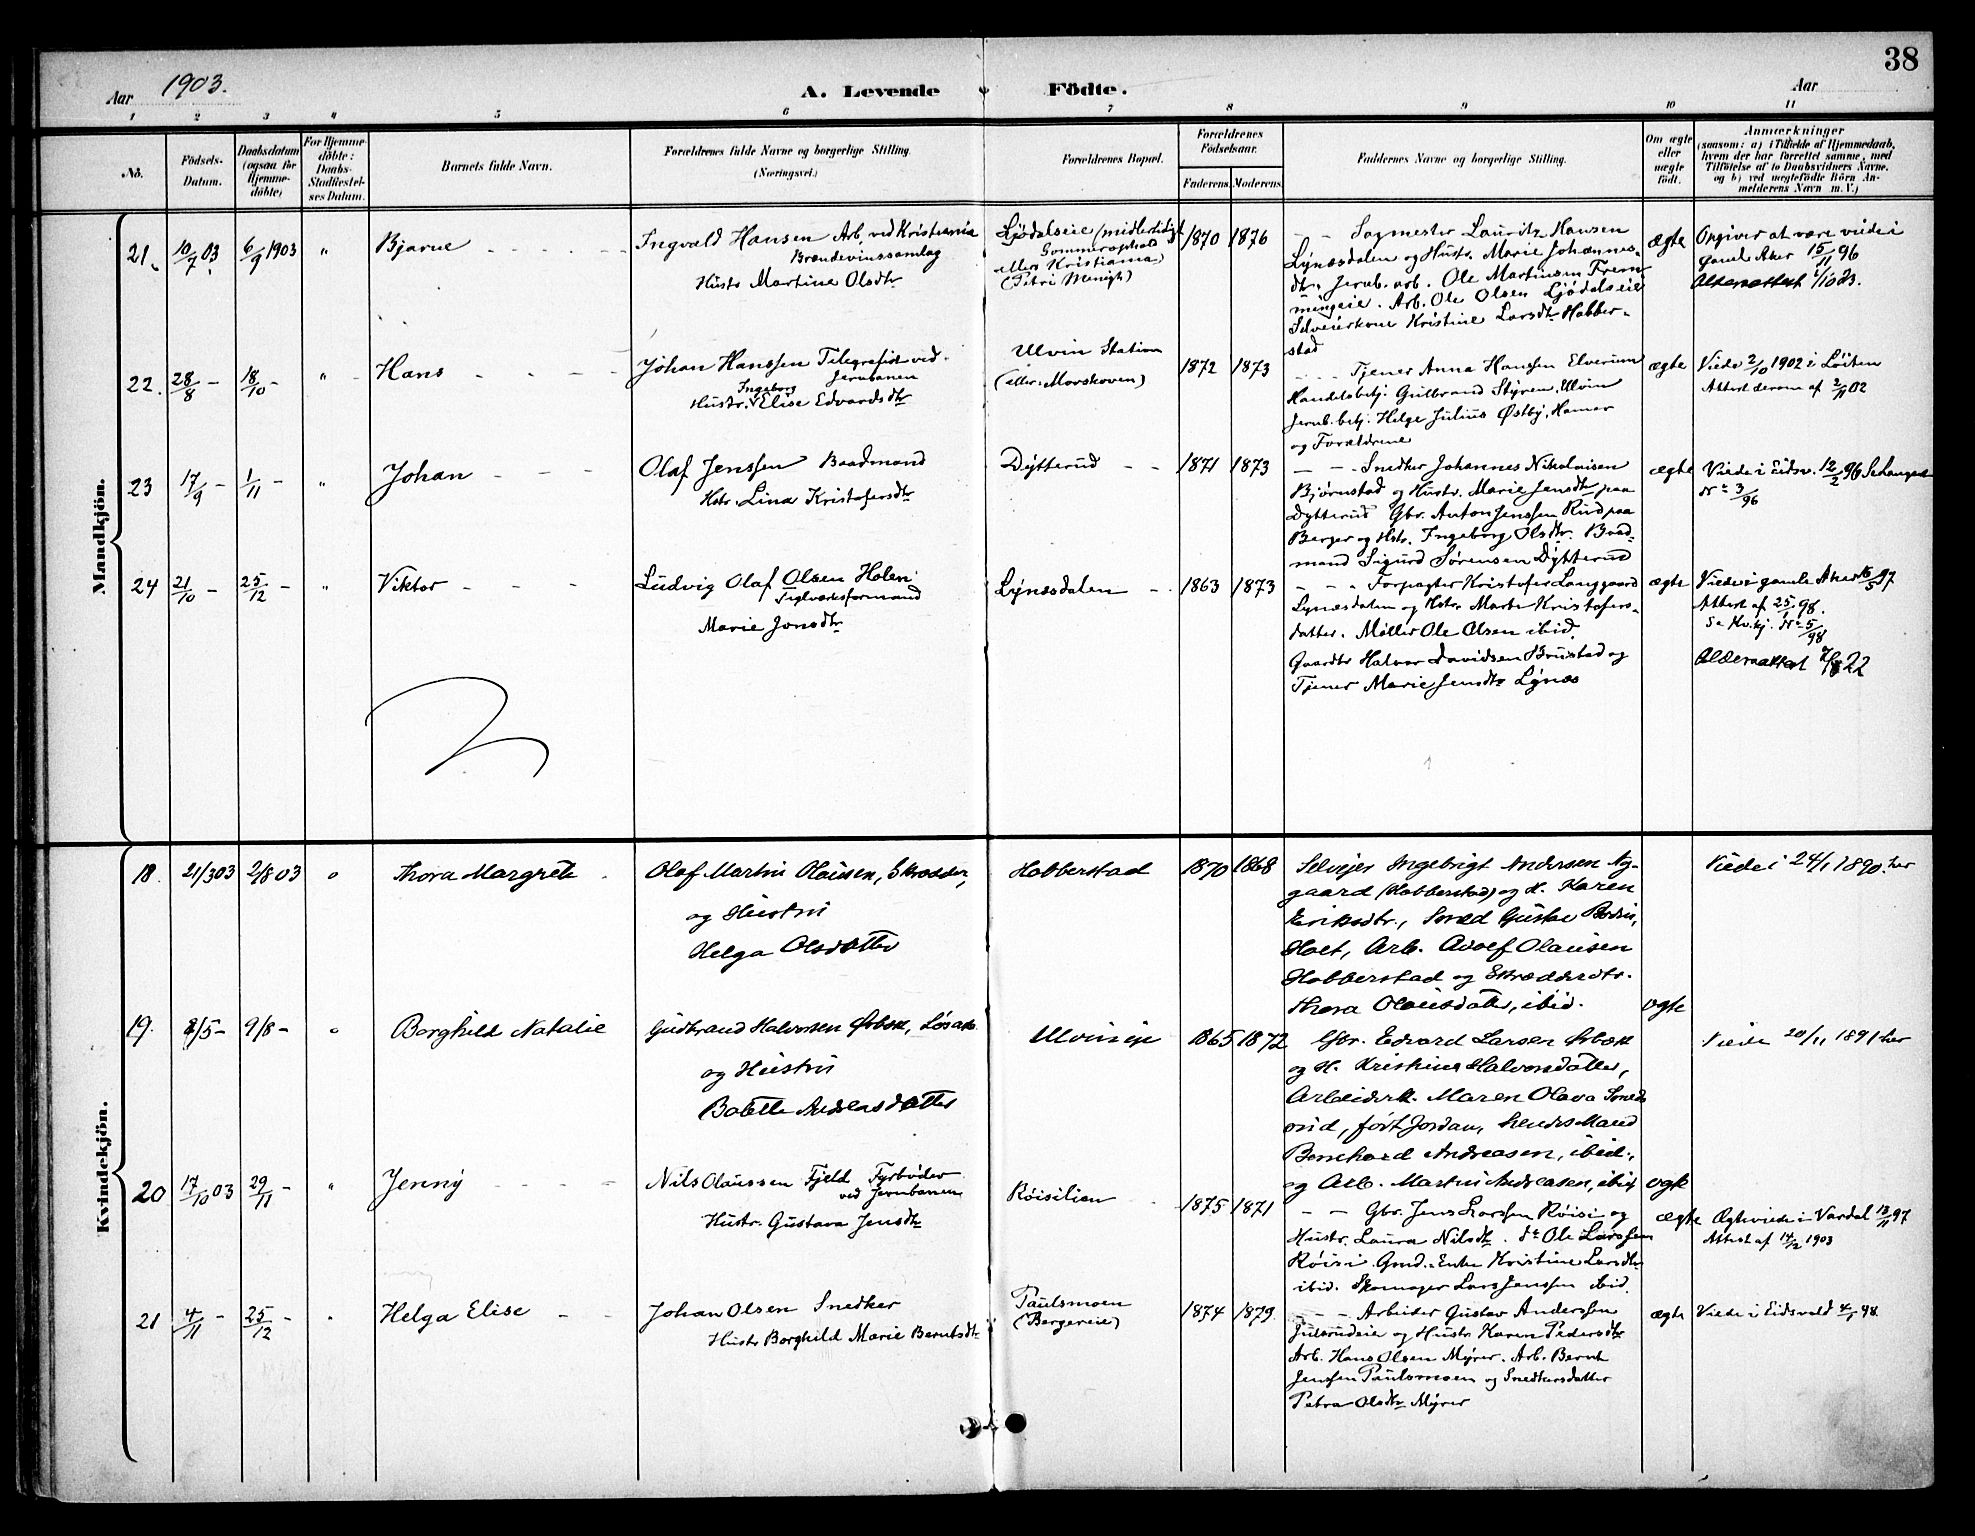 38
Aar 1903.
A. Levende Födte.
Aar
1 2 3 4 5 6 7 8 9 10 11
No.
Födsels-
Datum.
Daabsdatum
(ogsaa for
Hjemme-
döbte)
For Hjemme-
döbte:
Daabs-
Stadfæstel-
ses Datum.
Barnets fulde Navn.
Forældrenes fulde Navne og borgerlige Stilling.
(Næringsvei.)
Forældrenes Bopæl.
Forældrenes
Födselsaar.
Faderens. Moderens.
Faddernes Navne og borgerlige Stilling.
Om ægte
eller
uægte
födt.
Anmærkninger
(saasom: a) i Tilfælde af Hjemmedaab,
hvem der har forrettet samme, med
Tilföielse af to Daabsvidners Navne.
og b) ved uægtefödte Börn An-
melderens Navn m. V.)
Mandkjön.
21. 10/7 03. 6/9 1903 " Bjarne
Ingvald Hansen Arb. ved Kristiania
Brændevinssamlag
Hustr Martine Olsdtr
Ljødalseie (midlertidigt
Sommerophold
ellers Kristiania)
(Petri Menigh)
1870 1876
Sagmester Lauritz Hansen
Lynæsdalen og Hustr. Marie Johannes-
dtr. Jernb. arb. Ole Martinsen Frem
mingeie. Arb. Ole Olsen Ljødalseie
Selveierkone Kristine Larsdtr Habber-
stad
ægte
Opgiver at være viede i
Gamle Aker 15/11 96
Alderattest 1/10 23.
22. 28/8 - 18/10 - " Hans
Johan Hanssen Telegrafist ved
Jernbanen
Hustr. Ingeborg Elise Edvardsdtr
Ulvin Station
(eller: Morskoven)
1872 1873
Tjener Anna Hanssen Elverum
Handelsbetj. Gulbrand Styren, Ulvin
Jernb. betj. Helge Julius Østby, Hamar
og Forældrene
ægte
Viede 2/10 1902 i Løiten
Attest derom af 2/11 02
23 17/9 - 1/11 - " Johan
Olaf Jenssen Baadmand
Hstr. Lina Kristofersdtr
Dytterud
1871 1873
Snedker Johannes Nikolaisen
Bjørnstad og Hustr. Marie Jensdtr paa
Dytterud Gbr. Anton Jenssen Rud paa
Berger og Hstr. Ingeborg Olsdtr. Baad-
mand Sigurd Sørensen Dytterud
ægte
Viede i Eidsv. 12/2 96 Se Langset
No 3/96
24 21/10 - 25/12 - " Viktor
Ludvig Olaf Olsen Holen
Teglværksformand
Marie Jonsdtr
Lynæsdalen
1863 1873
Forpagter Kristofer Langgaard
Lynæsdalen og Hstr. Marte Kristofers-
datter. Møller Ole Olsen ibid.
Gaardbr Halvor Davidsen Brustad og
Tjener Marie Jensdtr Lynæs
ægte
Viede i gamle Aker 16/5 97
Attest af 25/1 98.
Se Kv.kj. No 5/98
Alderattest 22
Kvindekjön.
18. 21/3 03 2/8 03 " Thora Margrete
Olaf Martin Olausen, Skrædder,
og Hustru
Helga Olsdatter
Habberstad
1870 1868
Selvejer Ingebrigt Andersen Ny-
gaard (Habberstad) og H. Karen
Eriksdtr., Smed Gustav
Holt, Arb. Adolf Olausen
Habberstad og Skrædderdtr.
Thora Olausdatter, ibid.
ægte
Viede i 24/1 1890. her
19. 8/5 - 9/8 - " Borghild Natalie
Gudbrand Halvorsen Ørbæk,
og Hustru
Bolette Andreasdatter
Ulvineie
1865 1872
Gbr. Edvard Larsen Ørbæk
og H. Kristine Halvorsdatter,
Arbeiderk. Maren Olava
født Jordan,
Bernhard Andreasen, ibid.,
og Arb. Martin Andreasen, ibid
ægte
Viede 20/11 1891 her
20 17/10 03 29/11 - " Jenny
Nils Olaussen Fjeld Fyrbøder
ved Jernbanen
Hustr. Gustava Jensdtr
Røisilien
1875 1871
Gbr. Jens Larssen Røisi og
Hustr. Laura Nilsdtr. do Ole Larssen
Røisi. Gmd. Enke Kristine Larsdtr
ibid. Skomager Lars Jenssen ibid.
ægte
Ægteviede i Vardal 13/11 97
Attest af 14/2 1903
21 4/11 - 25/12 - " Helga Elise
Johan Olsen Snedker
Hustr Borghild Marie Berntsdtr
Paulsmoen
(Bergereie)
1874 1879.
Arbeider Gustav Anderssen
Julsrudeie og Hustr Karen Pedersdtr
Arb. Hans Olsen Myrer. Arb. Bernt
Jenssen Paulsmoen og Snedkersdatter
Petra Olsdtr Myrer
ægte
Viede i Eidsvold 98